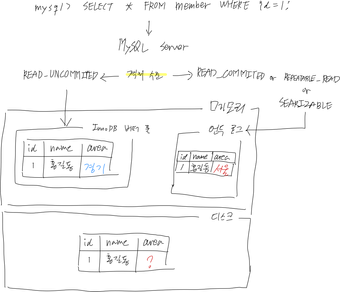 mysql> SELECT * FROM member WHERE id=1;
MySQL server
READ_UNCOMMITED ← 격리 수준 → READ_COMMITED or REPEATABLE_READ
or
SEARIZABLE
메모리
InnoDB 버퍼 풀
언두 로그
id name area
1 홍길동 경기
id name area
1 홍길동 서울
디스크
id name area
1 홍길동 ?